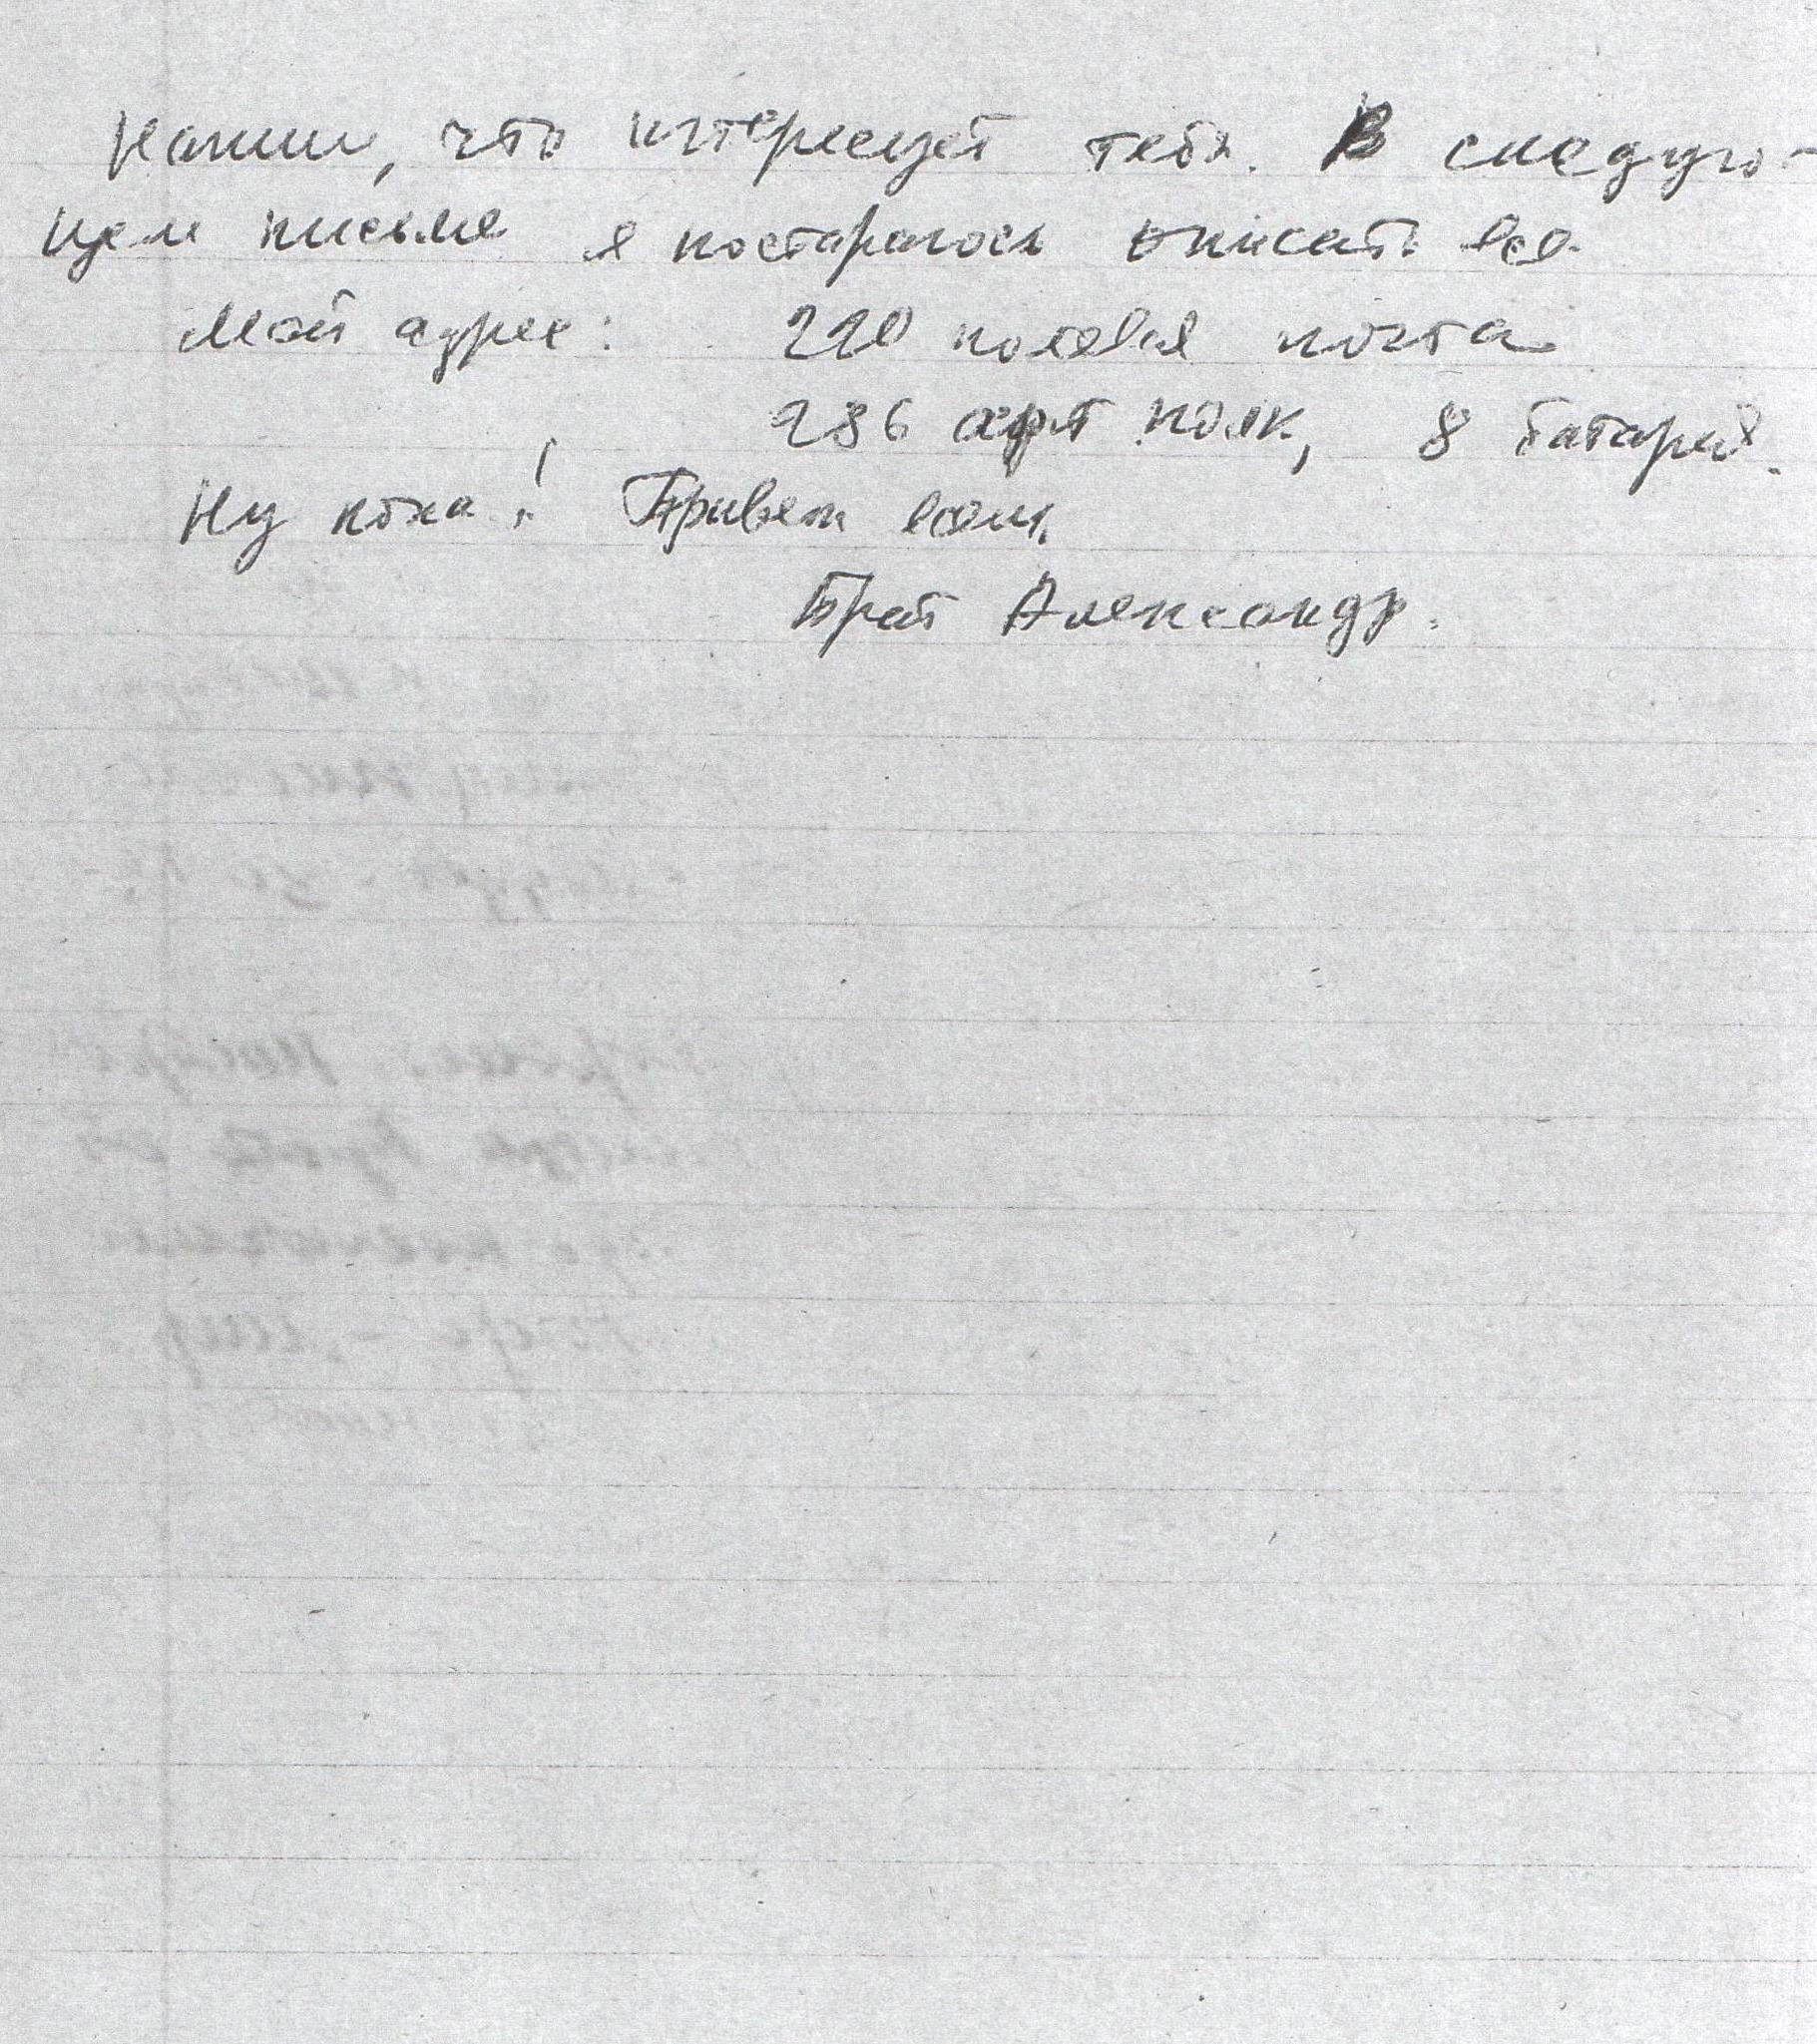 Напиши, что интересует тебя. В следую-
щем письме я постараюсь описать все.
Мой адрес: 220 полевая почта
286 арт полк, 8 батарея.
Ну пока! Привет всем.
Брат Александр.